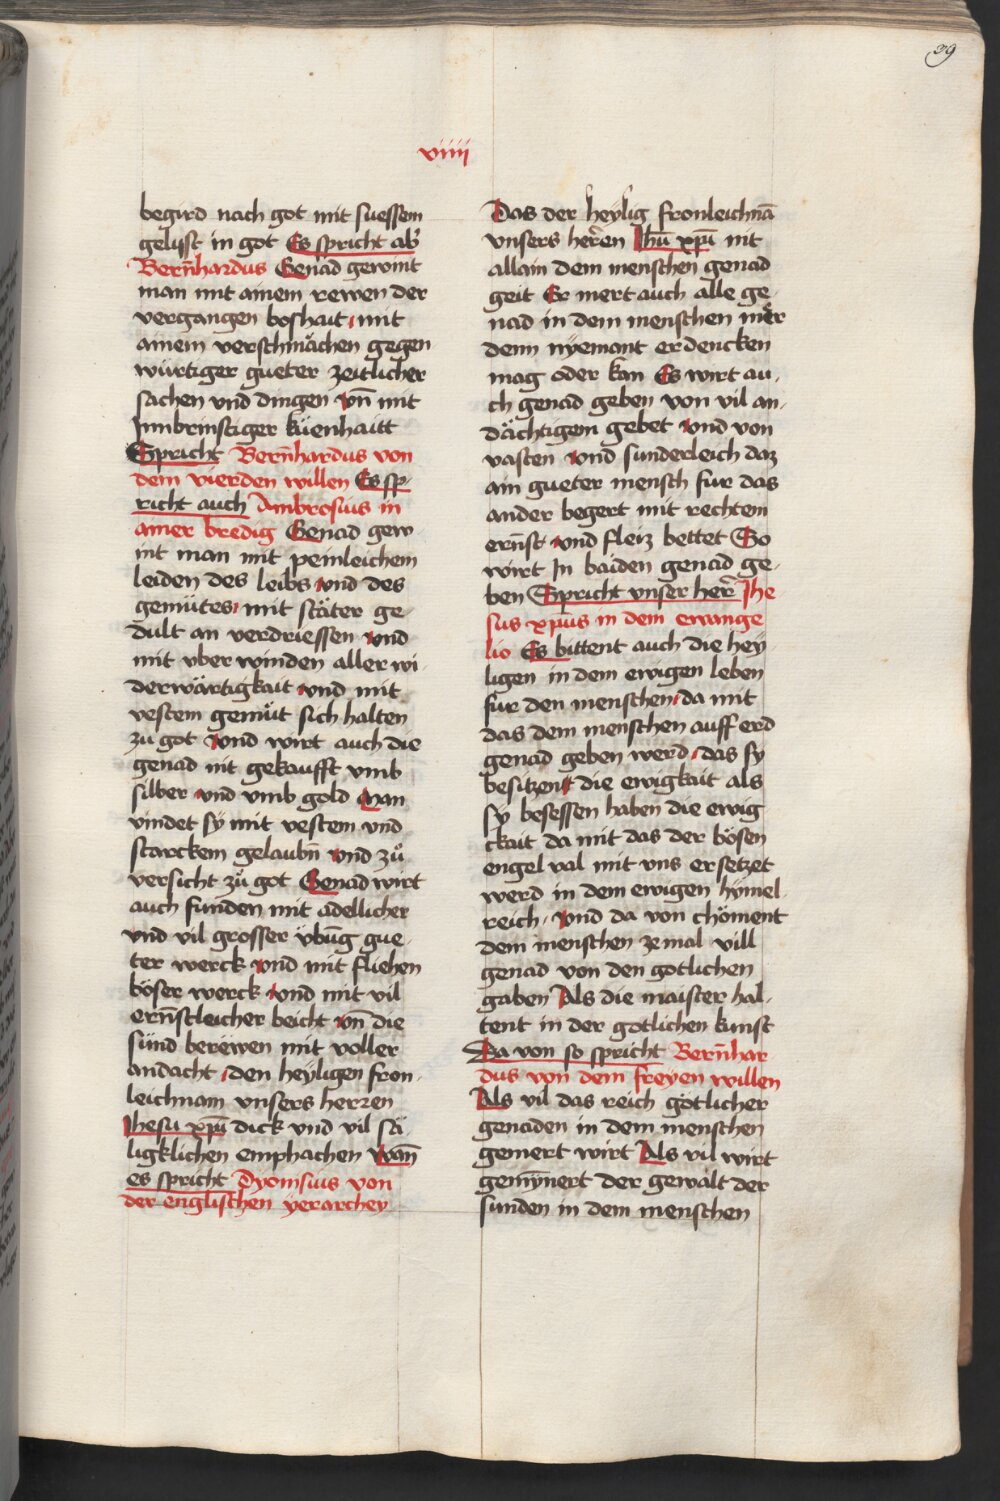 39
viiii
begird nach got mit suessem
gelust in got Es spricht ab
Bern̄hardus Genad gewint
man mit ainem rewen der
vergangen boshait mit
ainem verschmächen gegen
würtiger gueter zeitlicher
sachen vnd dingen vn̄ mit
Innbrinstiger küenhaitt
Spricht Bern̄hardus von
dem vierden willen Es sp
richt auch Ambrosius in
ainer bredig Genad gew
int man mit peinleichem
leiden des leibs vnd des
gemütes mit stäter ge
dult an verdriessen vnd
mit vber winden aller wi
derwärtigkait vnd mit
vestem gemüt sich halten
zu got vnd wirt auch die
genad nit gekaufft vmb
silber vnd vmb gold Man
vindet sÿ mit vestem vnd
starckem gelaubn̄ vnd zů
versicht zů got Genad wirt
auch funden mit adellicher
vnd vil grosser vbūg gue
ter werck vnd mit fliehen
böser werck vnd mit vil
ern̄stleicher beicht vn̄ die
sünd berewen mit voller
andacht den heÿligen fron
leichnam vnsers herren
Jhesu xp̄ū dick vnd vil sä
ligklichen emphachen wan̄
es spricht Dyonisius von
der englischen yerarchey
Das der heÿlig fronleichnā
vnsers heren Jhū xp̄ū nit
allain dem menschen genad
geit Er mert auch alle ge
nad in dem menschen mer
denn nÿemant erdencken
mag oder kan Es wirt au
ch genad geben von vil an
dächtigem gebet vnd von
vasten vnd sunderleich daz
ain gueter mensch fur das
ander begert mit rechtem
ern̄st vnd fleiz bettet So
wirt In baiden genad ge
ben Spricht vnser her Jhe
sus xp̄us in dem ewange
lio Es bittent auch die heÿ
ligen in dem ewigen leben
fur den menschen da mit
das dem menschen auff erd
genad geben werd das sÿ
besitzent die ewigkait als
sÿ besessen haben die ewig
ckait da mit das der bösen
engel val mit vns ersetzet
werd in dem ewigen hÿmel
reich vnd da von chöment
dem menschen ze mal vill
genad von den gotlichen
gaben Als die maister hal
tent in der gotlichen kunst
Da von so spricht Bern̄har
dus von dem freyen willen
Als vil das reich götlicher
genaden in dem menschen
gemert wirt Als vil wirt
gemÿnert der gewalt der
sunden in dem menschen